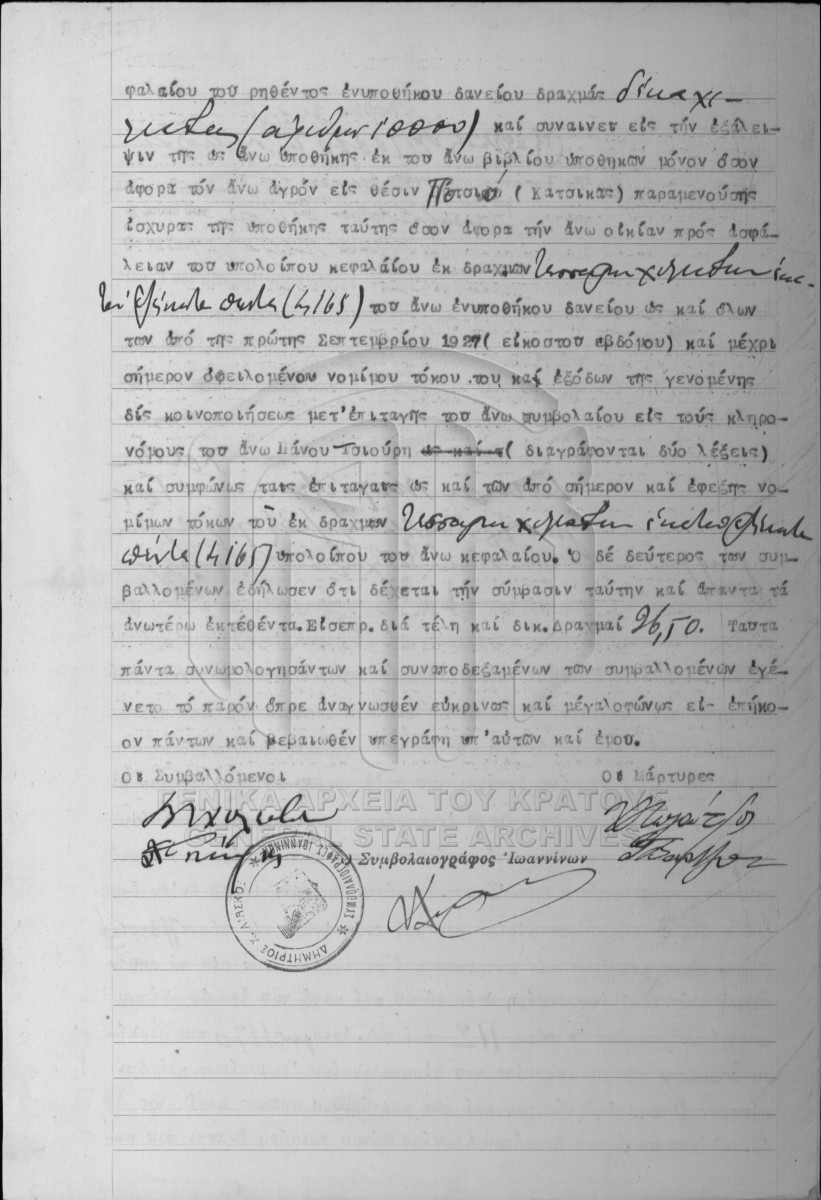 φαλαίου τοῦ ρηθέντος ἐνυποθήκου δανείου δραχμάς δέκα χι-
λιάδας (ἀριθμ 10000) καί συναινεῖ εἰς τήν ἐξάλει-
ψιν τῆς ὡς ἄνω ὑποθήκης ἐκ τοῦ ἄνω βιβλίου ὑποθηκῶν μόνον ὅσον
ἀφορᾶ τόν ἄνω ἀγρόν εἰς θέσιν (Κατσικᾶς) παραμενούσης
ἰσχυρᾶς τῆς ὑποθήκης ταύτης ὅσον ἀφορᾶ τήν ἄνω οἰκίαν πρός ἀσφά-
λειαν τοῦ ὑπολοίπου κεφαλαίου ἐκ δραχμῶν τεσσάρων χιλιάδων ἑκα-
τόν ἑξήκοντα πέντε (4165) τοῦ ἄνω ἐνυποθήκου δανείου ὡς καί ὅλων
τῶν ἀπό τῆς πρώτης Σεπτεμβρίου 1927( εἰκοστοῦ ἑβδόμου) καί μέχρι
σήμερον ὀφειλομένου νομίμου τόκου του καί ἐξόδων τῆς γενομένης
δίς κοινοποιήσεως μετ'ἐπιταγῆς τοῦ ἄνω συμβολαίου εἰς τούς κληρο-
νόμους τοῦ ἄνω Πάνου Τσιούρη ὡς καί τ( διαγράφονται δύο λέξεις)
καί συμφώνως ταῖς ἐπιταγαῖς ὡς καί τῶν ἀπό σήμερον καί ἐφεξῆς νο-
μίμων τόκων τοῦ ἐκ δραχμῶν τεσσάρων χιλιάδων ἑκατόν ἑξήκοντα
πέντε (4165) ὑπολοίπου τοῦ ἄνω κεφαλαίου. Ὁ δέ δεύτερος τῶν συμ-
βαλλομένων ἐδήλωσεν ὅτι δέχεται τήν σύμβασιν ταύτην καί ἅπαντα τά
ἀνωτέρω ἐκτεθέντα. Εἰσεπρ. διά τέλη καί δικ. Δραχμαί 26,50. Ταῦτα
πάντα συνωμολογησάντων καί συναποδεξαμένων τῶν συμβαλλομένων ἐγέ-
νετο τό παρόν ὅπρε ἀναγνωσθέν εὐκρινῶς καί μεγαλοφώνως εἰς ἐπήκο-
ον πάντων καί βεβαιωθέν ὑπεγράφη ὑπ'αὐτῶν καί ἐμοῦ.
Οἱ Συμβαλλόμενοι Οἱ Μάρτυρες
ΓΕΝΙΚΑ ΑΡΧΕΙΑ ΤΟΥ ΚΡΑΤΟΥΣ
GENERAL STATE ARCHIVES
Ὁ Συμβολαιογράφος Ἰωαννίνων
ΣΥΜΒΟΛΑΙΟΓΡΑΦΟΣ ΙΩΑΝΝΙΝΩΝ
ΔΗΜΗΤΡΙΟΣ